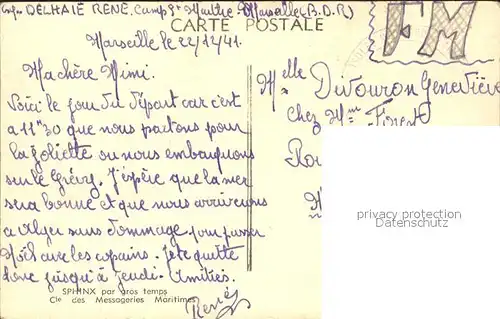 DELHAIE RENÉ, Camp Ste Marthe - Marseille (B.D.R)
CARTE POSTALE
FM
Marseille le 22/12/41.
Ma chère Mimi.
Voici le jour du départ car c'est
a 11h30 que nous partons pour
la Joliette ou nous embarquons
sur le Grévy. J'espère que la mer
sera bonne et que nous arriverons
a Alger sans dommage pour passer
Noël avec les copains. Je te quitte
donc jusqu'à jeudi. Amitiés.
René
Melle Divouron Geneviève
chez Mm
privacy protection
Datenschutz
SPHINX par gros temps
Cie des Messageries Maritimes